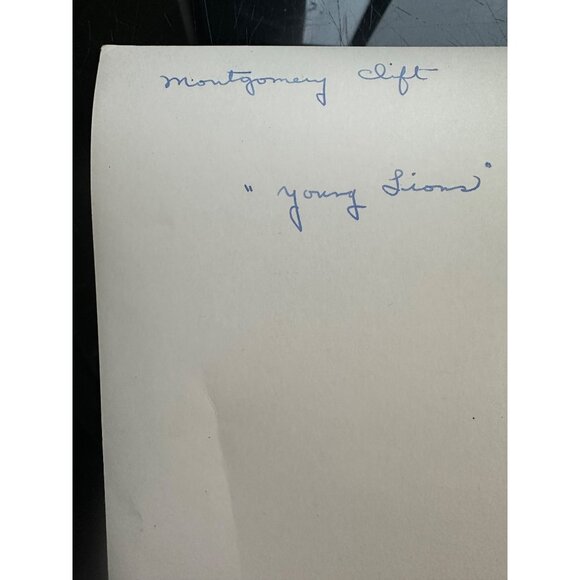 Montgomery Clift
"Young Lions"